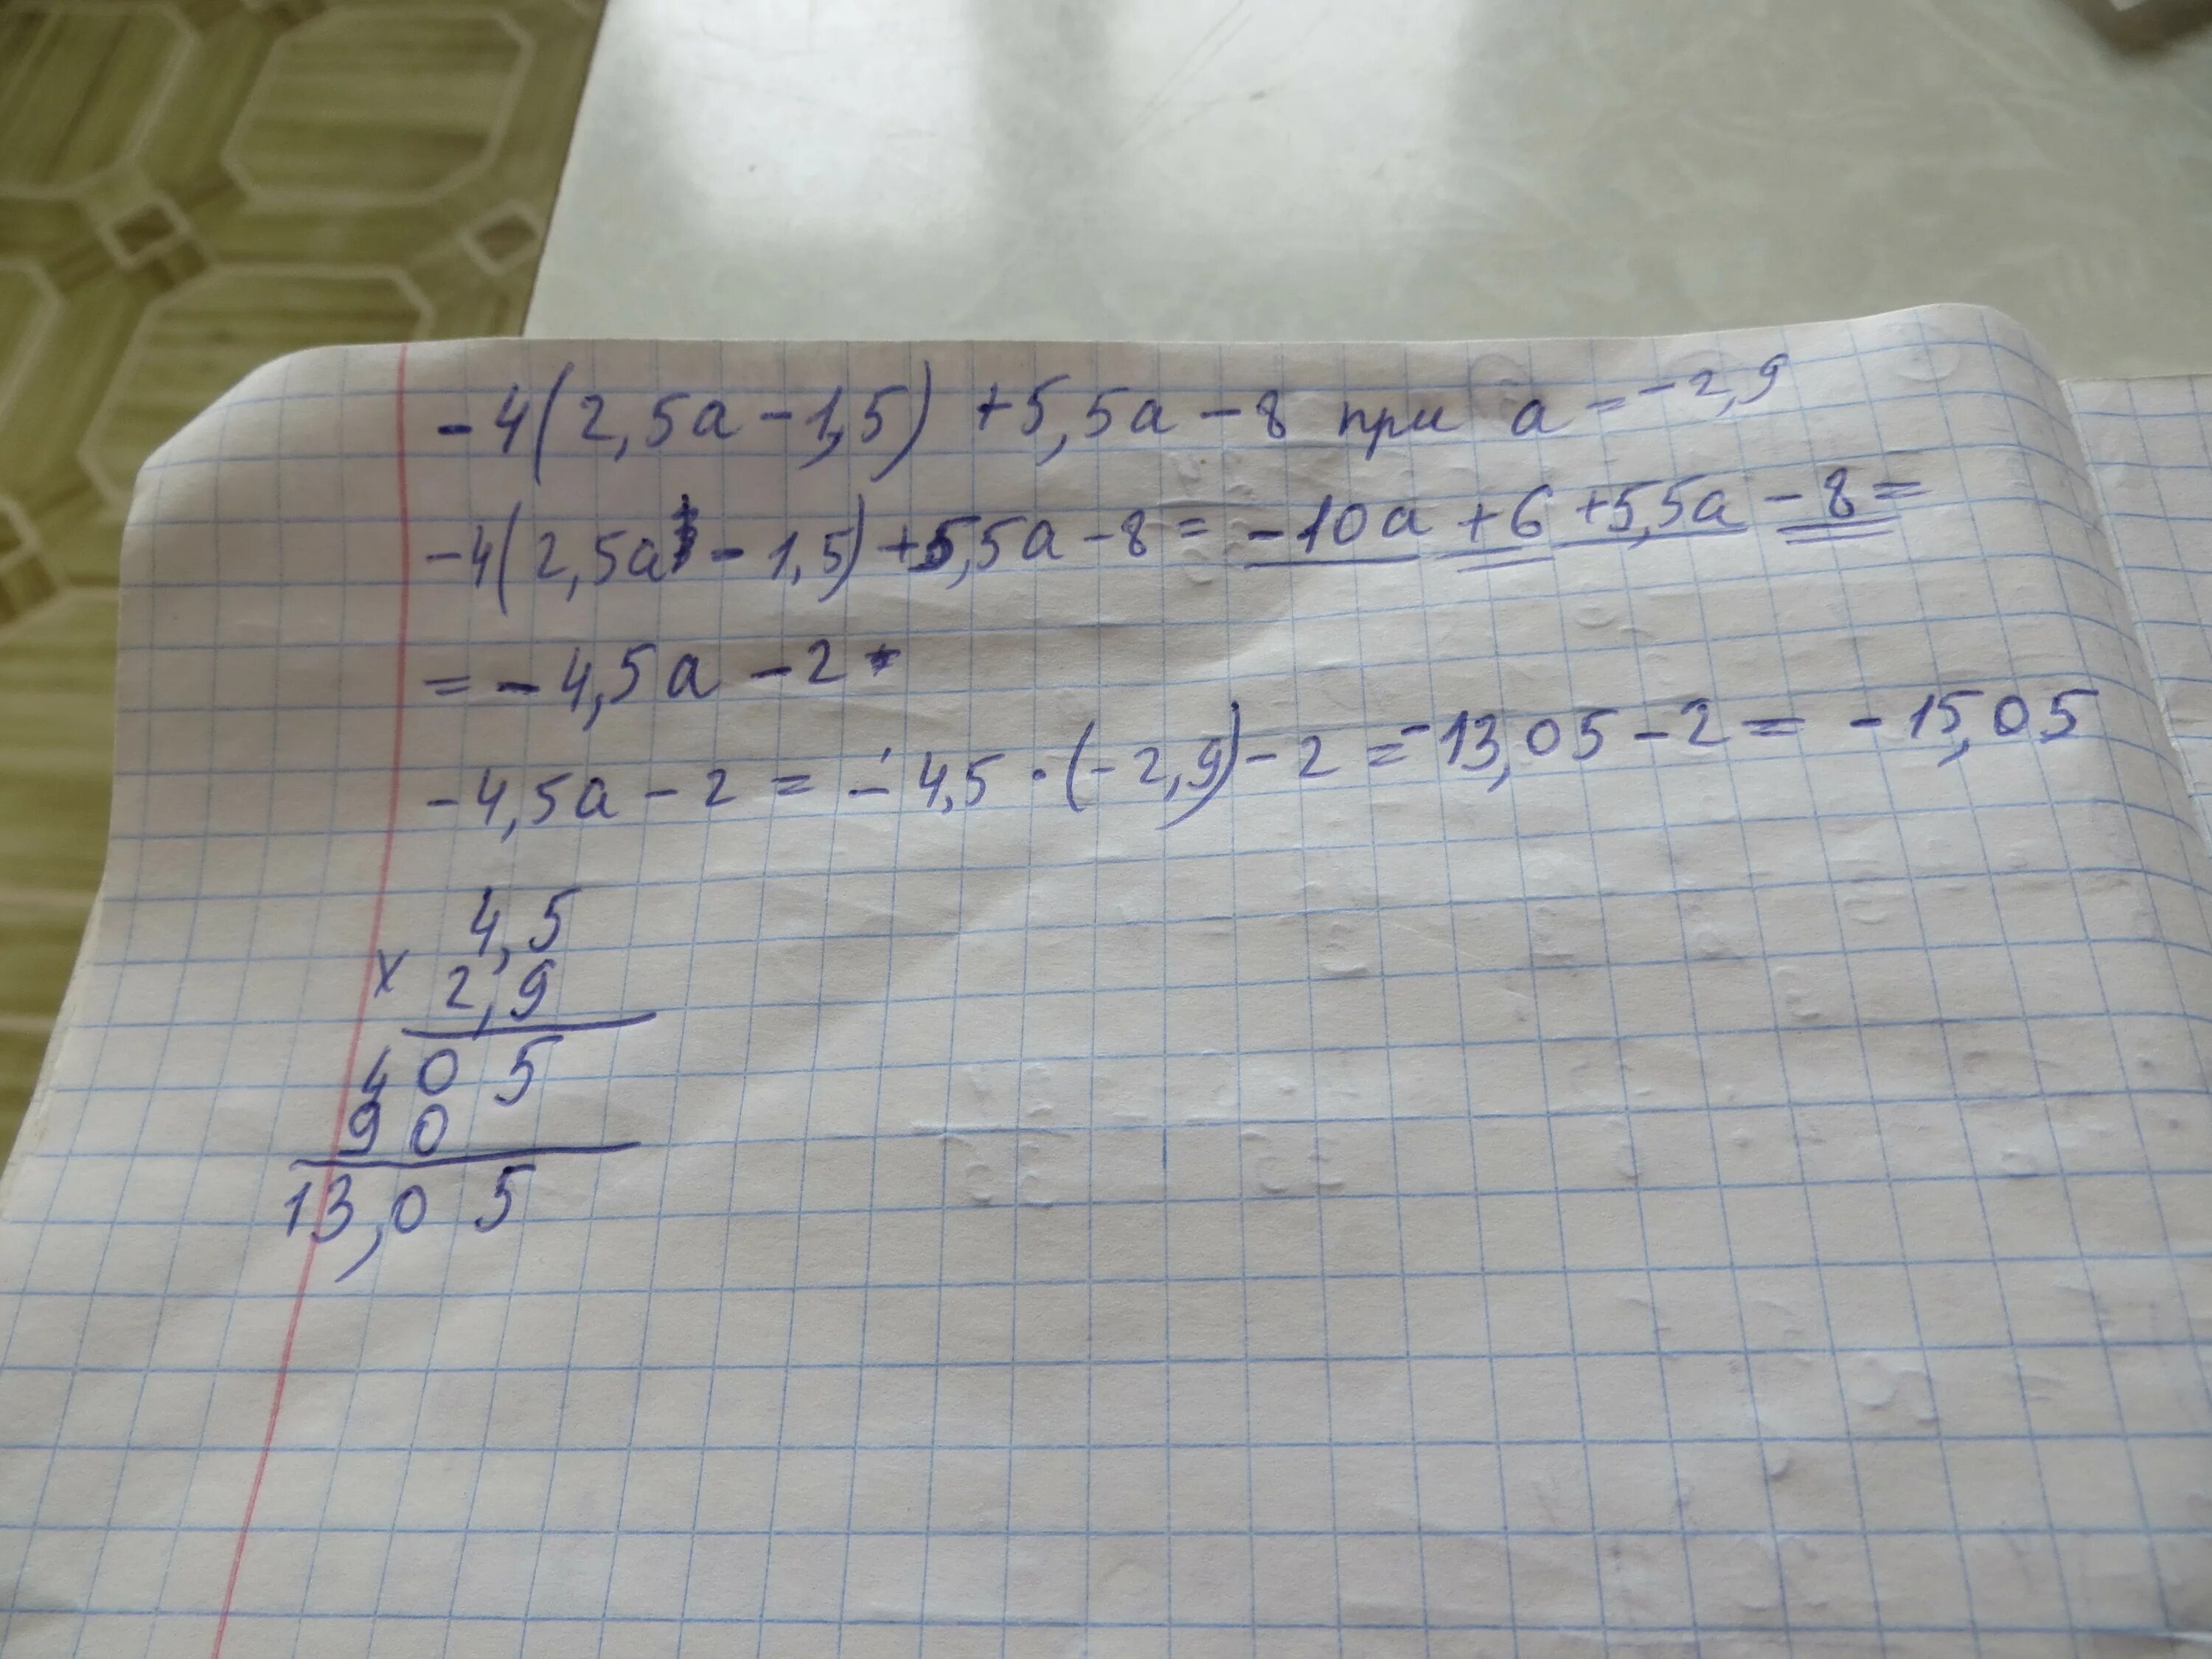 -4(2,5a-1,5) +5,5a-8 при a=-2,9
-4(2,5a-1,5)+5,5a-8= -10a+6+5,5a-8=
=-4,5a-2
-4,5a-2=-4,5·(-2,9)-2=-13,05-2=-15,05
4,5
x 2,9
405
90
13,05